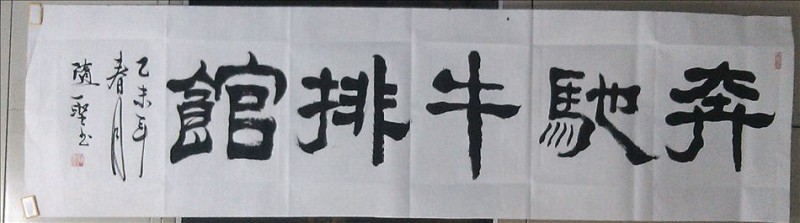 奔馳牛排館
乙未年
春月
隨一聖書